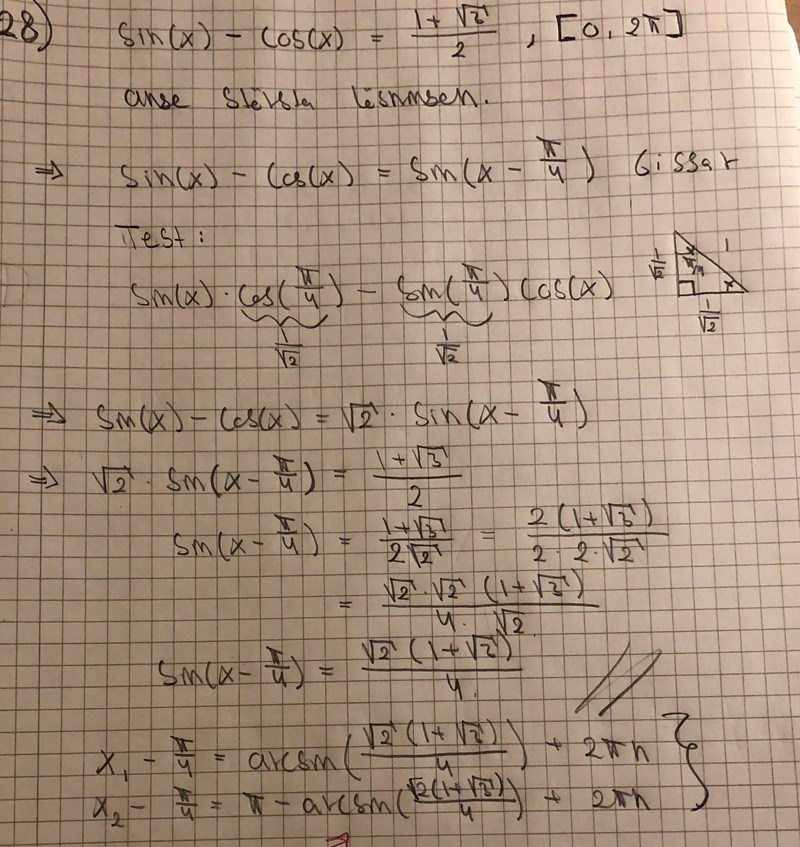 28) sin(x) - cos(x) = (1 + √3)/2 , [0, 2π]
ange största lösningen.
⇒ sin(x) - cos(x) = sin(x - π/4) Gissar
Test:
sin(x) · cos(π/4) - sin(π/4) cos(x)
1/√2 1/√2
1/√2 π/4 1
1/√2
⇒ sin(x) - cos(x) = √2 · sin(x - π/4)
⇒ √2 · sin(x - π/4) = (1 + √3)/2
sin(x - π/4) = (1 + √3)/(2√2) = 2(1 + √3)/(2 · 2 · √2)
= √2 · √2 (1 + √3)/(4 · √2)
sin(x - π/4) = √2 (1 + √3)/4
x₁ - π/4 = arcsin(√2 (1 + √3)/4) + 2πn
x₂ - π/4 = π - arcsin(√2(1 + √3)/4) + 2πn